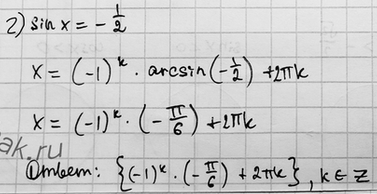 2) sin x = - 1/2
x = (-1)^k · arcsin(-1/2) + 2πk
x = (-1)^k · (-π/6) + 2πk
ak.ru
Ответ: {(-1)^k · (-π/6) + 2πk}, k ∈ Z